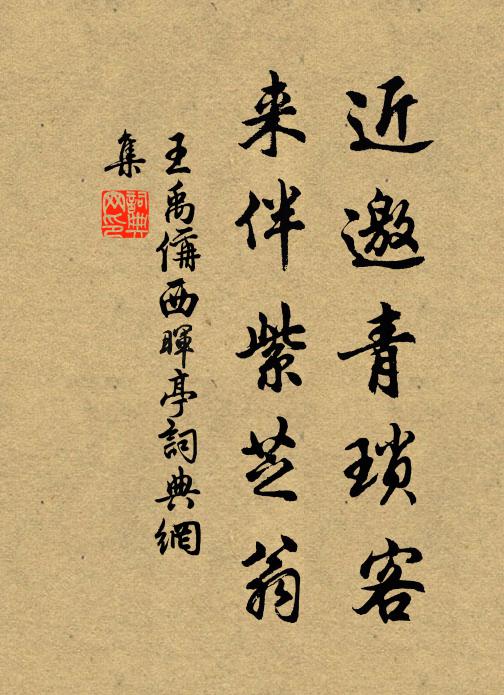 近邀青瑣客
来伴紫芝翁
王禹偁西暉亭詞典網
集
詞典網印